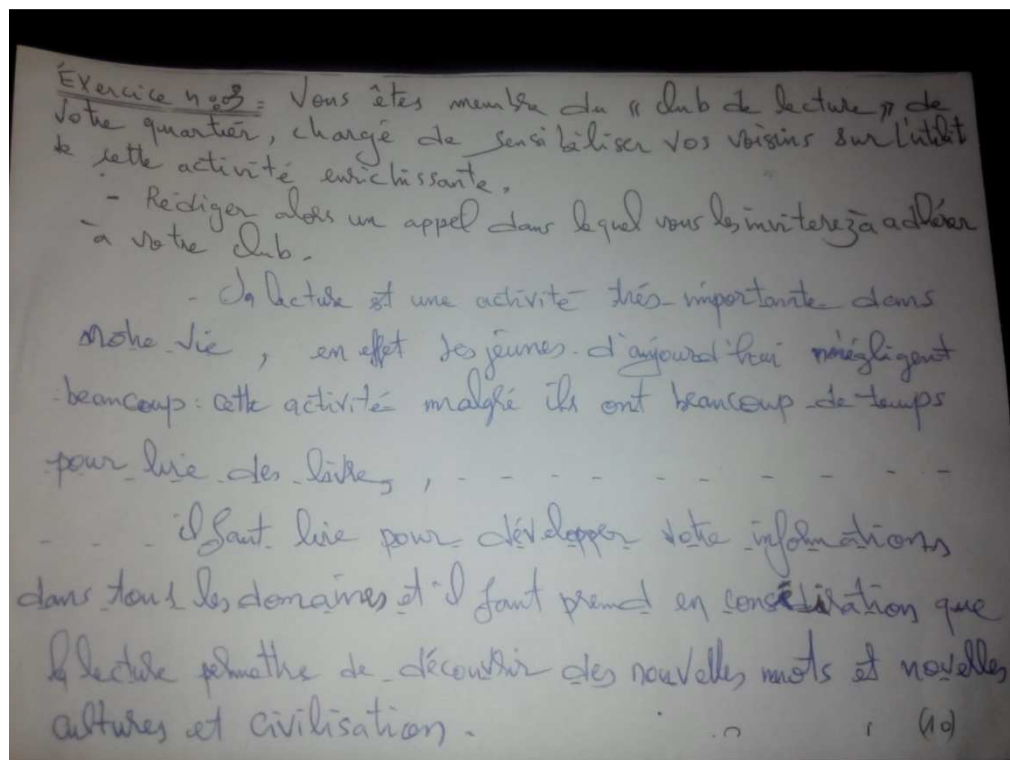 Exercice n:3= Vous êtes membre du « Club de lecture » de
votre quartier, chargé de sensibiliser vos voisins sur l'utilit
de cette activité enrichissante.
- Rédiger alors un appel dans lequel vous les inviterez à adhérer
à votre club.
- La lecture est une activité très importante dans
notre vie, en effet les jeunes d'aujourd'hui négligent
beaucoup cette activité malgré ils ont beaucoup de temps
pour lire des livres, - - - - - - - -
- - - il faut lire pour développer votre informations
dans tous les domaines et il faut prend en considération que
la lecture permettre de découvrir des nouvelles mots et novelles
cultures et civilisation. (10)